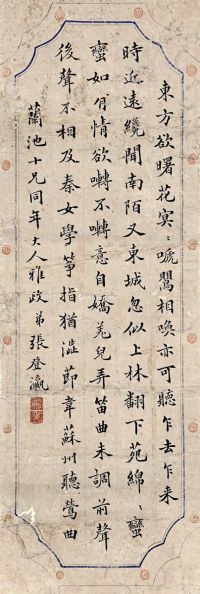 東方欲曙花冥〻嗁鶯相喚亦可聽乍去乍来
時近遠纔聞南陌又東城忽似上林翻下苑綿〻蠻
蠻如有情欲囀不囀意自嬌羌兒弄笛曲未調前聲
後聲不相及秦女學箏指猶澁節韋蘇州聽鶯曲
蘭池十兄同年大人雅政弟張登瀛